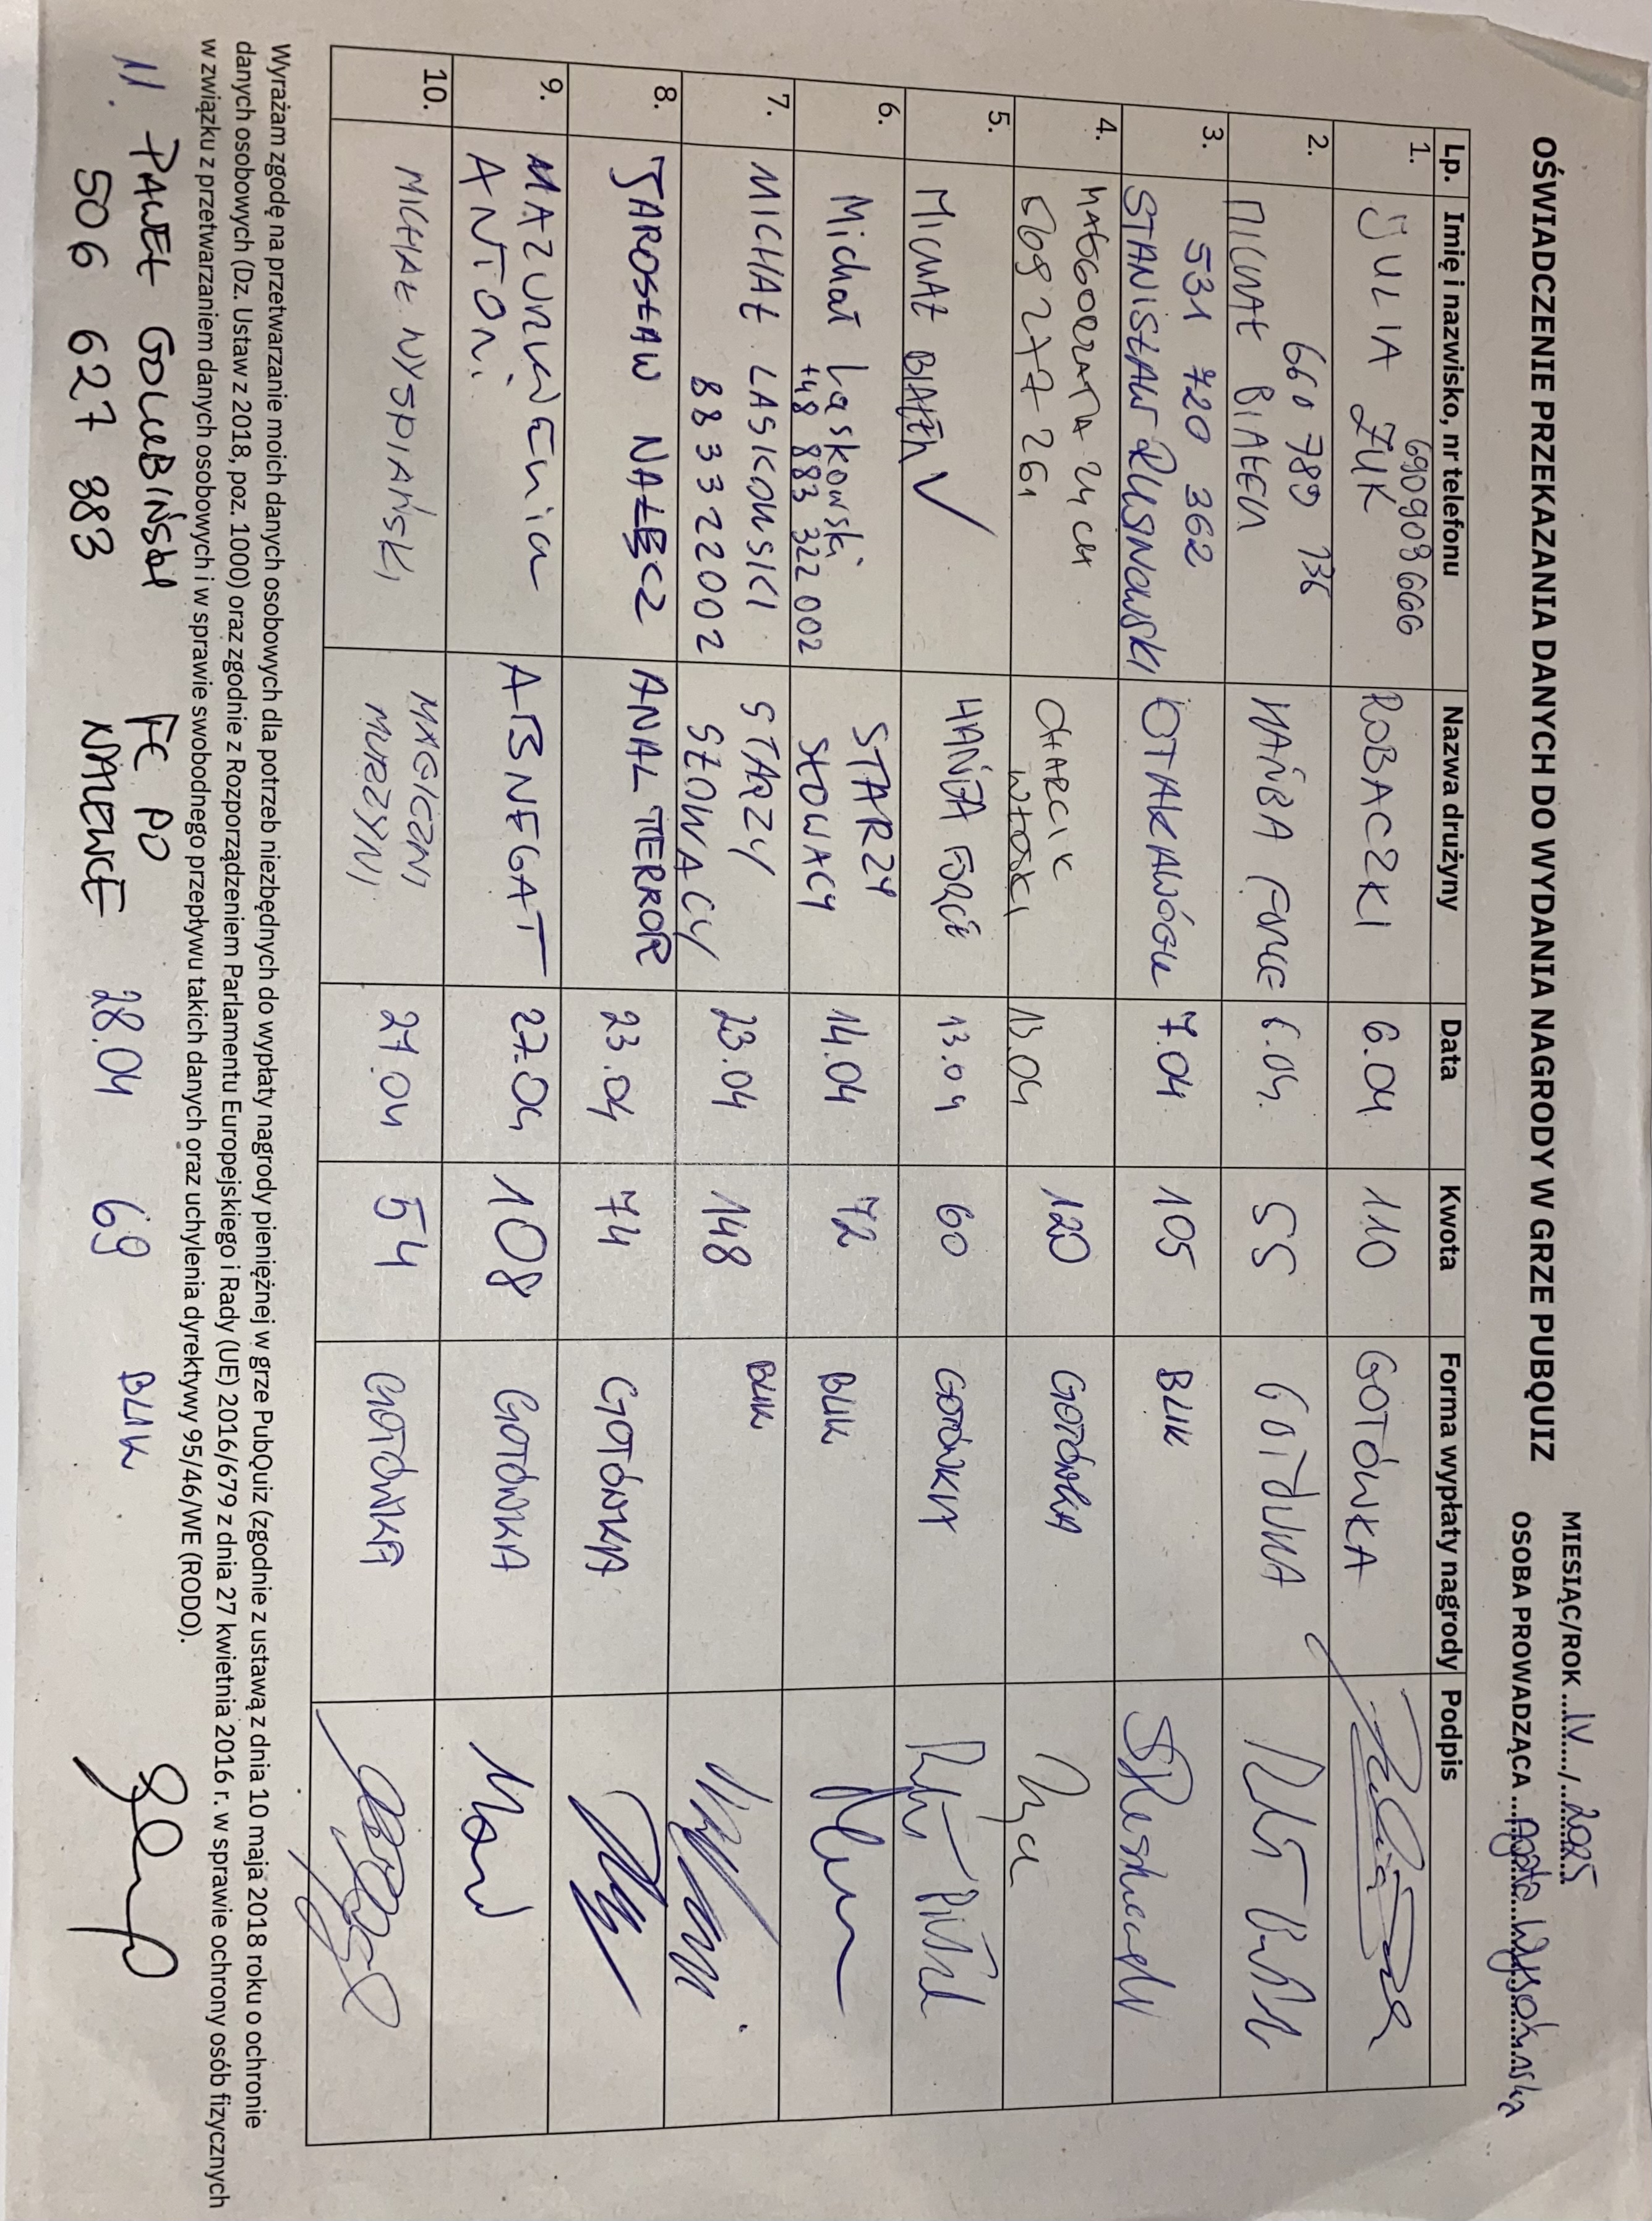 OŚWIADCZENIE PRZEKAZANIA DANYCH DO WYDANIA NAGRODY W GRZE PUBQUIZ
MIESIĄC/ROK ...IV..../..2025
OSOBA PROWADZĄCA ... Agata
Lp. Imię i nazwisko, nr telefonu Nazwa drużyny Data Kwota Forma wypłaty nagrody Podpis
1. JULIA ŻUK 690 909 666 ROBACZKI 6.04 110 GOTÓWKA
2. 660 789 736
MICHAŁ BIAŁEK HAŃBA FORCE 6.04. 55 GOTÓWKA
3. 531 720 362
STANISŁAW RUSINOWSKI OTAKAWÓGLE 7.04 105 BLIK
4. MAŁGORZATA ZYCH
509 277 261 CHARCIK WŁOSKI 13.04 120 GOTÓWKA
5. MICHAŁ BIAŁEK V HAŃBA FORCE 13.04 60 GOTÓWKA
6. Michał Laskowski
+48 883 322 002 STARZY SŁOWACY 14.04 72 BLIK
7. MICHAŁ LASKOWSKI
883322002 STARZY SŁOWACY 23.04 148 BLIK
8. JAROSŁAW NAŁĘCZ ANAL TERROR 23.04 74 GOTÓWKA
9. MAZURKIEWICZ
ANTONI ABNEGAT 27.04 108 GOTÓWKA
10. MICHAŁ WYSPIAŃSKI MAGICZNI MURZYNI 27.04 54 GOTÓWKA
Wyrażam zgodę na przetwarzanie moich danych osobowych dla potrzeb niezbędnych do wypłaty nagrody pieniężnej w grze PubQuiz (zgodnie z ustawą z dnia 10 maja 2018 roku o ochronie
danych osobowych (Dz. Ustaw z 2018, poz. 1000) oraz zgodnie z Rozporządzeniem Parlamentu Europejskiego i Rady (UE) 2016/679 z dnia 27 kwietnia 2016 r. w sprawie ochrony osób fizycznych
w związku z przetwarzaniem danych osobowych i w sprawie swobodnego przepływu takich danych oraz uchylenia dyrektywy 95/46/WE (RODO).
11. PAWEŁ GOŁĘBIŃSKI FC PO NALEWCE 28.04 69 BLIK
506 627 383